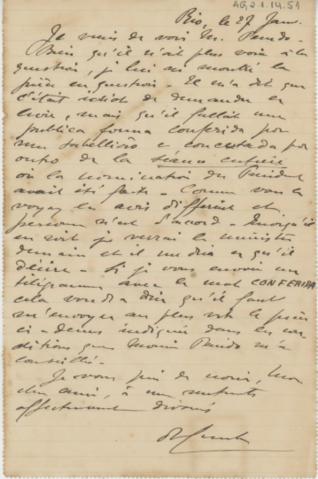 AG.01.14.51
Rio, le 27 Janv.
Je viens de voir M. Penedo.
Bien qu'il n'ait plus voix à la
question, je lui ai montré la
pièce en question. Il m'a dit que
c'était de demander
mais qu'il fallait une
publica forma conferida por
um tabellião e concertada por
outro de la séance entière
où la nomination du Président
avait été faite. Comme vous le
voyez les avis diffèrent et
personne n'est d'accord. Quoiqu'il
en soit je verrai le ministre
demain et il me dira ce qu'il
désire. Si je vous envoie un
télégramme avec le mot CONFERIDA
cela voudra dire qu'il faut
m'envoyer au plus vite la pièce
ci-dessus indiquée dans les con-
ditions que M. Penedo m'a
conseillé.
Je vous prie de croire, mon
cher ami, à mes sentiments
affectueux dévoués